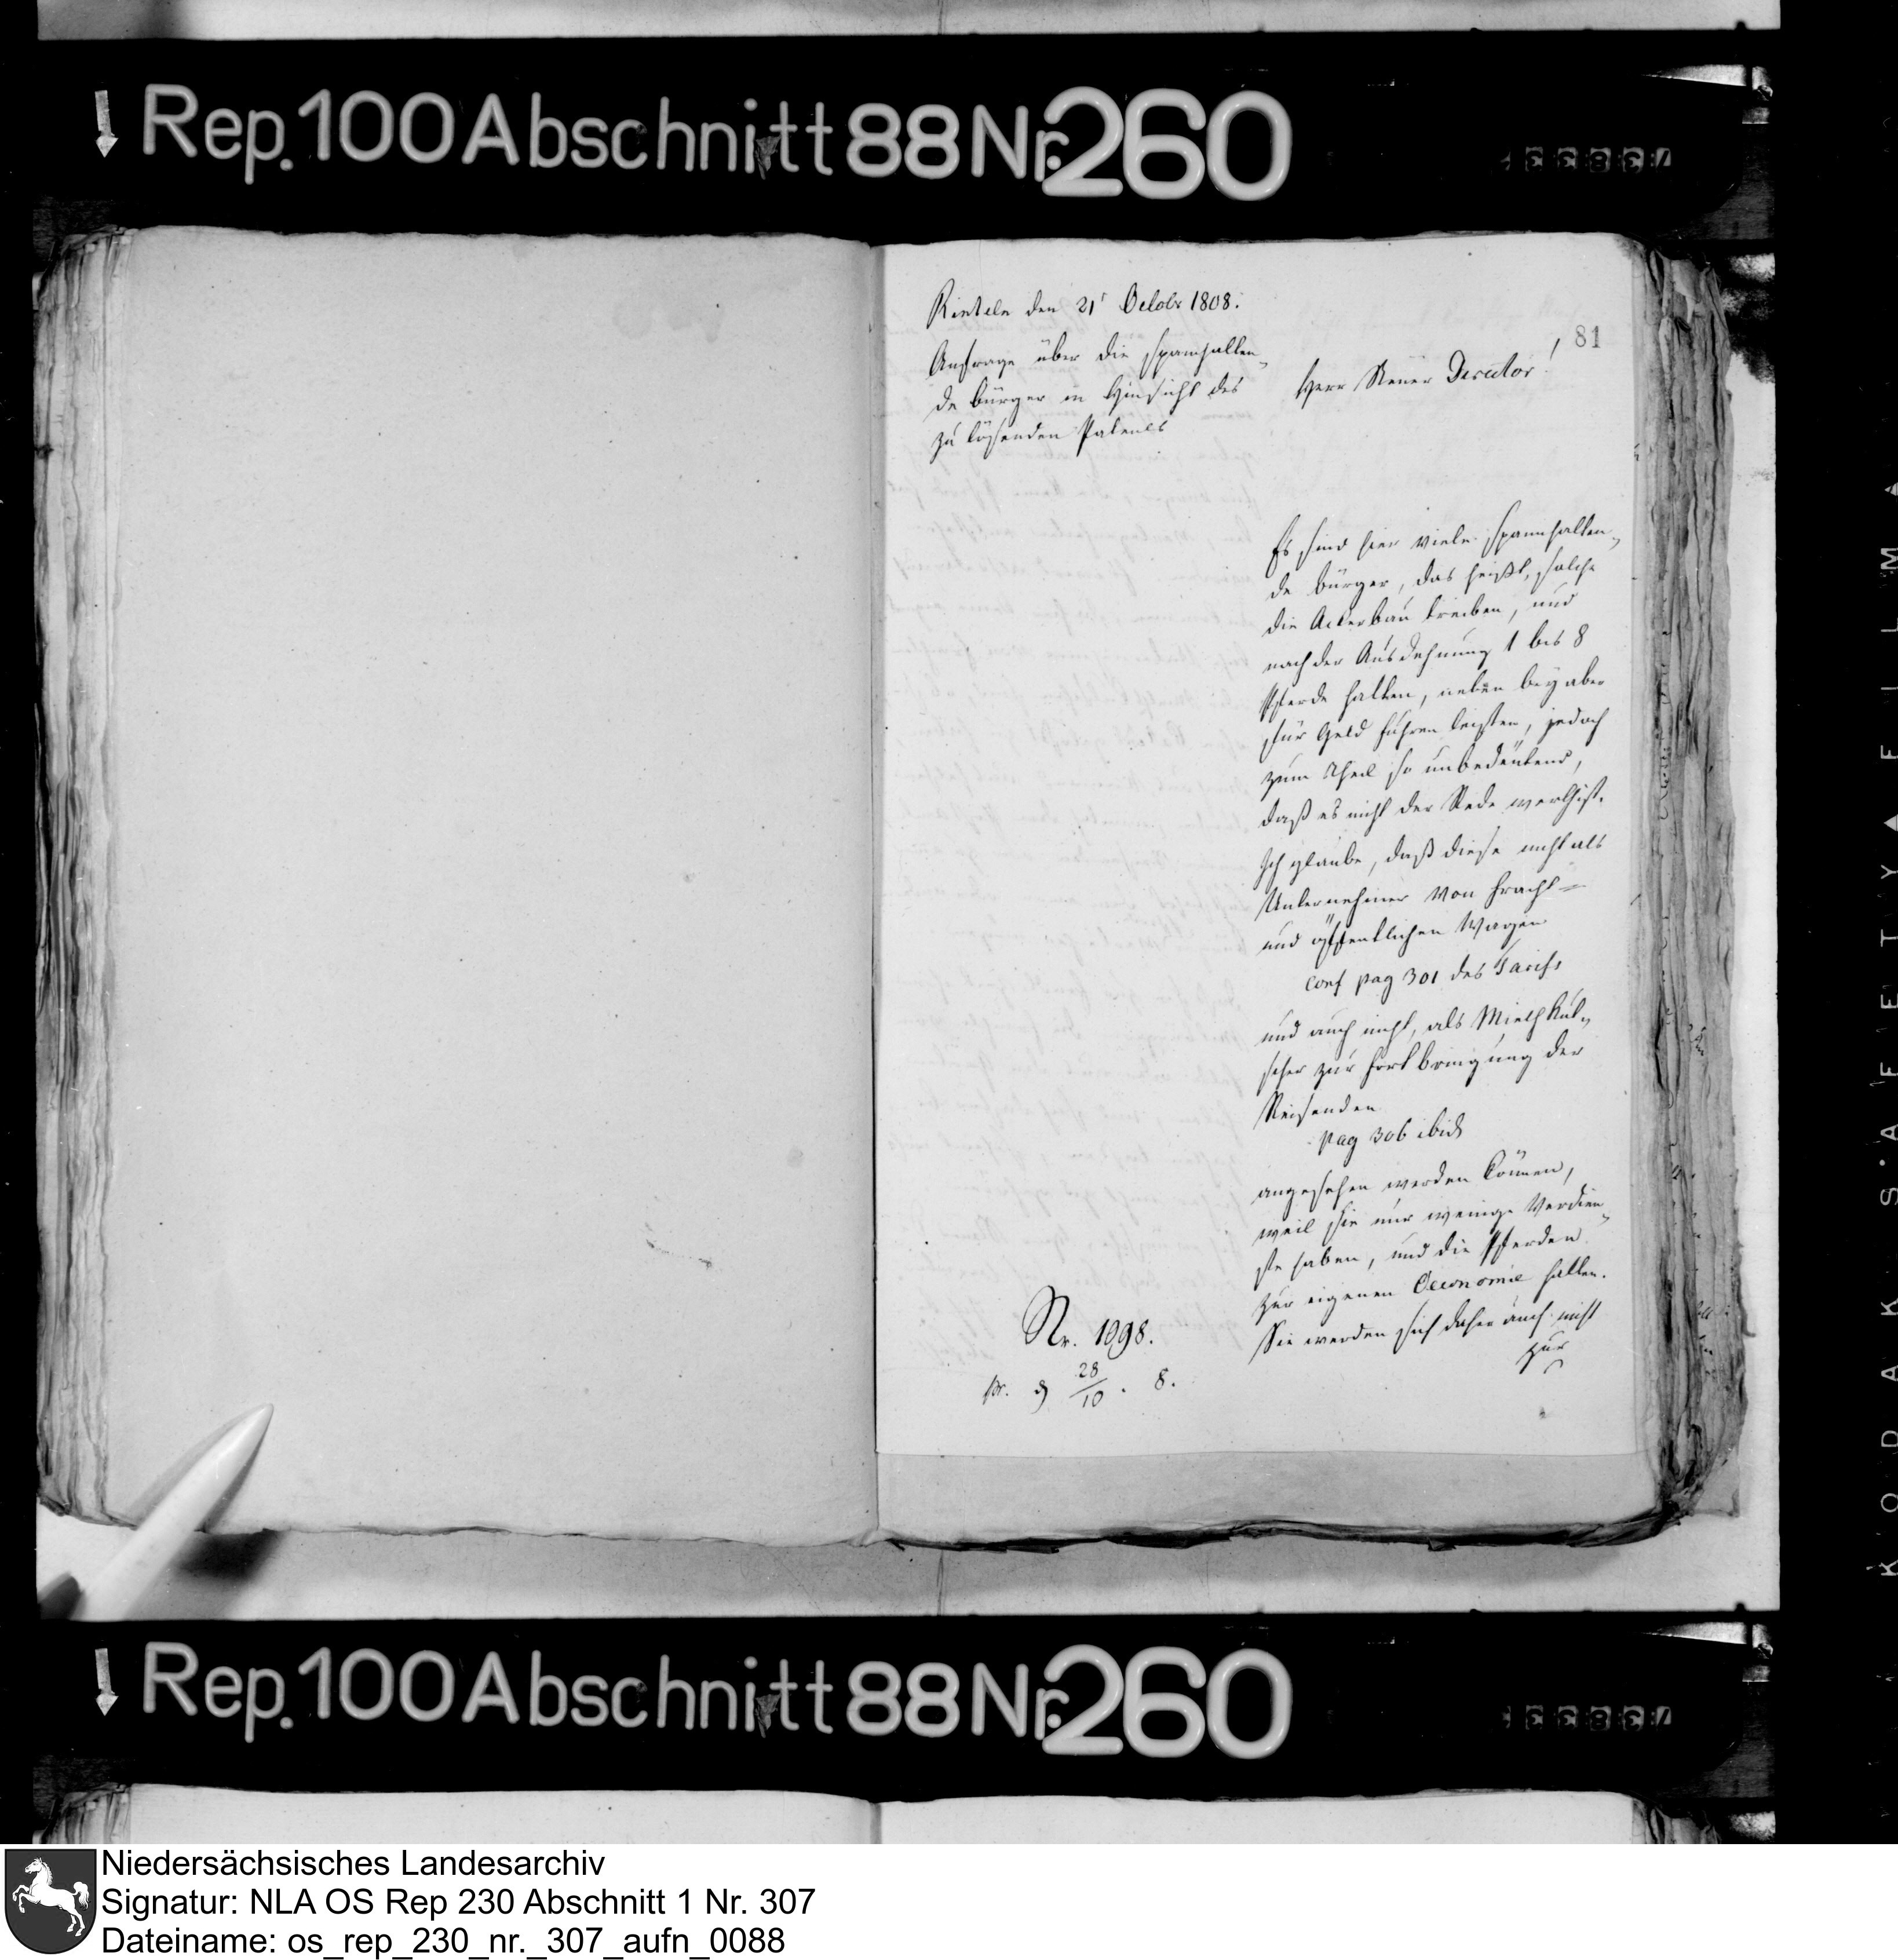 Rep. 100 Abschnitt 88 Nr. 260
81
Rinteln den 21t Octobr 1808.
Anfrage über die spannhalten-
de Bürger in Hinsicht des
zu lösenden Patents
Herr Steuer Director!
Es sind hier viele spannhalten-
de Bürger, das heißt, solche
die Ackerbau treiben, und
nach der Ausdehnung 1 bis 8
Pferde halten, neben bey aber
für Geld Fuhren leisten, jedoch
zum Theil so unbedeutend,
daß es nicht der Rede werth ist.
Ich glaube, daß diese nicht als
Unternehmer von Fracht=
und öffentlichen Wagen
conf pag 301 des Tarifs
und auch nicht, als Miethkut-
scher zur Fortbringung der
Reisenden
pag 306 ibid
angesehen werden können,
weil sie nur wenige Verdien-
ste haben, und die Pferden
zur eigenen Oeconomie halten.
Sie werden sich daher auch nicht
zur
Nr. 1098.
pr. d 28/10. 8.
Rep. 100 Abschnitt 88 Nr. 260
KODAK SAFETY FILM
Niedersächsisches Landesarchiv
Signatur: NLA OS Rep 230 Abschnitt 1 Nr. 307
Dateiname: os_rep_230_nr._307_aufn_0088